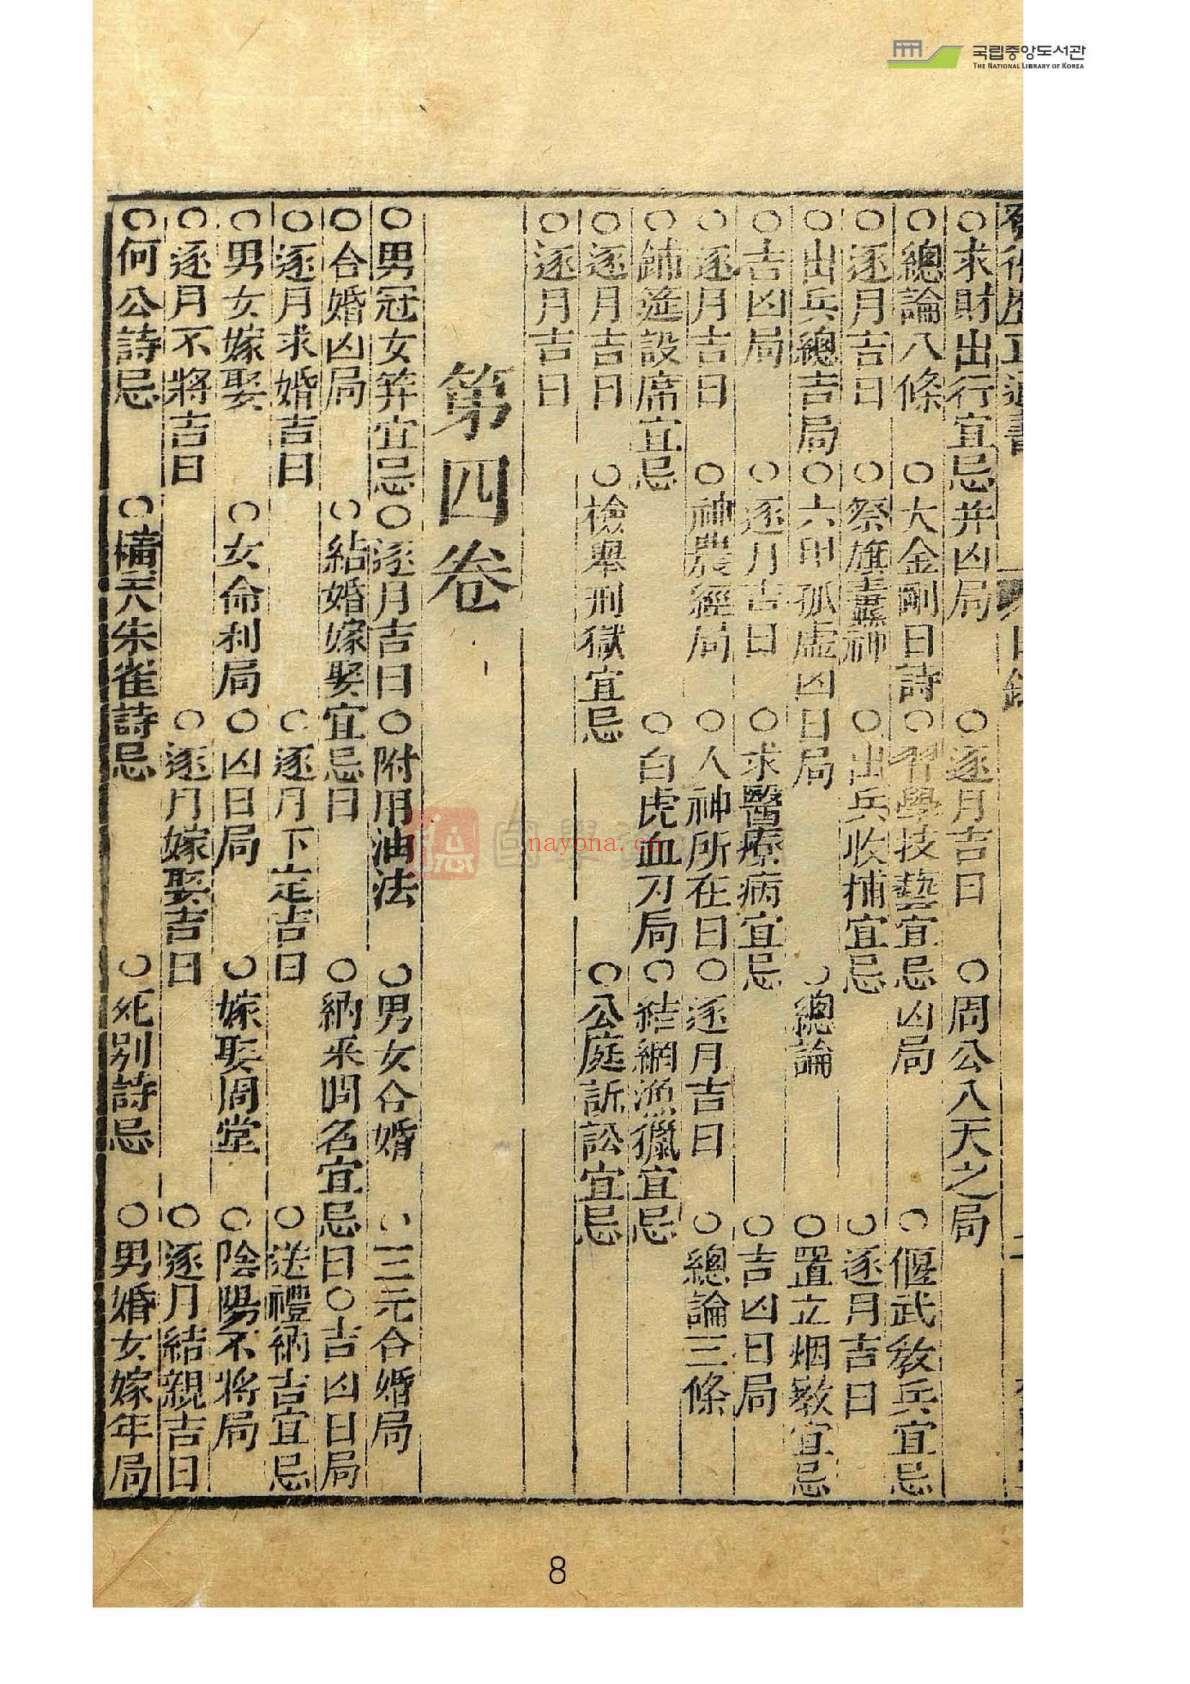 국립중앙도서관
THE NATIONAL LIBRARY OF KOREA
○求財出行宜忌并凶局 ○逐月吉日 ○周公八天之局
○總論八條 ○大金剛日詩 ○習學技藝宜忌凶局 ○偃武教兵宜忌
○逐月吉日 ○祭旗纛神 ○出兵收捕宜忌 ○逐月吉日
○出兵總吉局 ○六甲孤虛凶日局 ○總論 ○置立烟墩宜忌
○吉凶局 ○逐月吉日 ○求醫療病宜忌 ○吉凶日局
○逐月吉日 ○神農經局 ○人神所在日 ○逐月吉日 ○總論三條
○鋪筵設席宜忌 ○白虎血刃局 ○結網漁獵宜忌
○逐月吉日 ○檢舉刑獄宜忌 ○公庭訴訟宜忌
○逐月吉日
第四卷
○男冠女笄宜忌 ○逐月吉日 ○附用油法 ○男女合婚 ○三元合婚局
○合婚凶局 ○結婚嫁娶宜忌日 ○納采問名宜忌日 ○吉凶日局
○逐月求婚吉日 ○逐月下定吉日 ○送禮納吉宜忌
○男女嫁娶 ○女命利局 ○凶日局 ○嫁娶周堂 ○陰陽不將局
○逐月不將吉日 ○逐月嫁娶吉日 ○逐月結親吉日
○何公詩忌 ○橫天朱雀詩忌 ○死別詩忌 ○男婚女嫁年局
nayona.cn
8